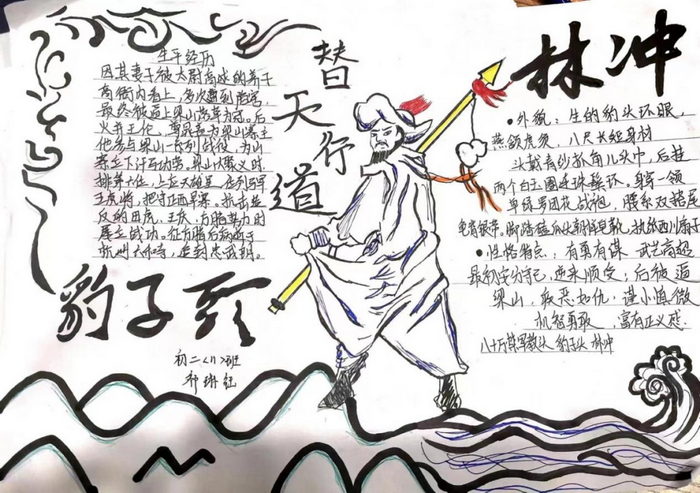 林冲
替天行道
豹子头
生平经历
因其妻子被太尉高俅的养子
高衙内看上，多次遭到陷害，
最终被逼上梁山落草为寇。后
火并王伦，尊晁盖为梁山寨主
他参与梁山一系列战役，为山
寨立下汗马功劳。梁山大聚义时
排第六位，上应天雄星，在列马军
五虎将，把守正西旱寨。抗击造
反的田虎、王庆、方腊势力时
屡立战功。征方腊后病逝于
杭州六和寺，追封忠武郎。
初二〈11〉班
外貌：生的豹头环眼，
燕颔虎须，八尺长短身材
头戴青纱抓角儿头巾，后挂
两个白玉圈连珠鬓环。身穿一领
单绿罗团花战袍，腰系双獭尾
龟背银带，
性格特点：有勇有谋 武艺高超
最初安分守己，逆来顺受；后被逼
梁山，嫉恶如仇，谨小慎微
机智勇敢，富有正义感
八十万禁军教头 豹子头 林冲